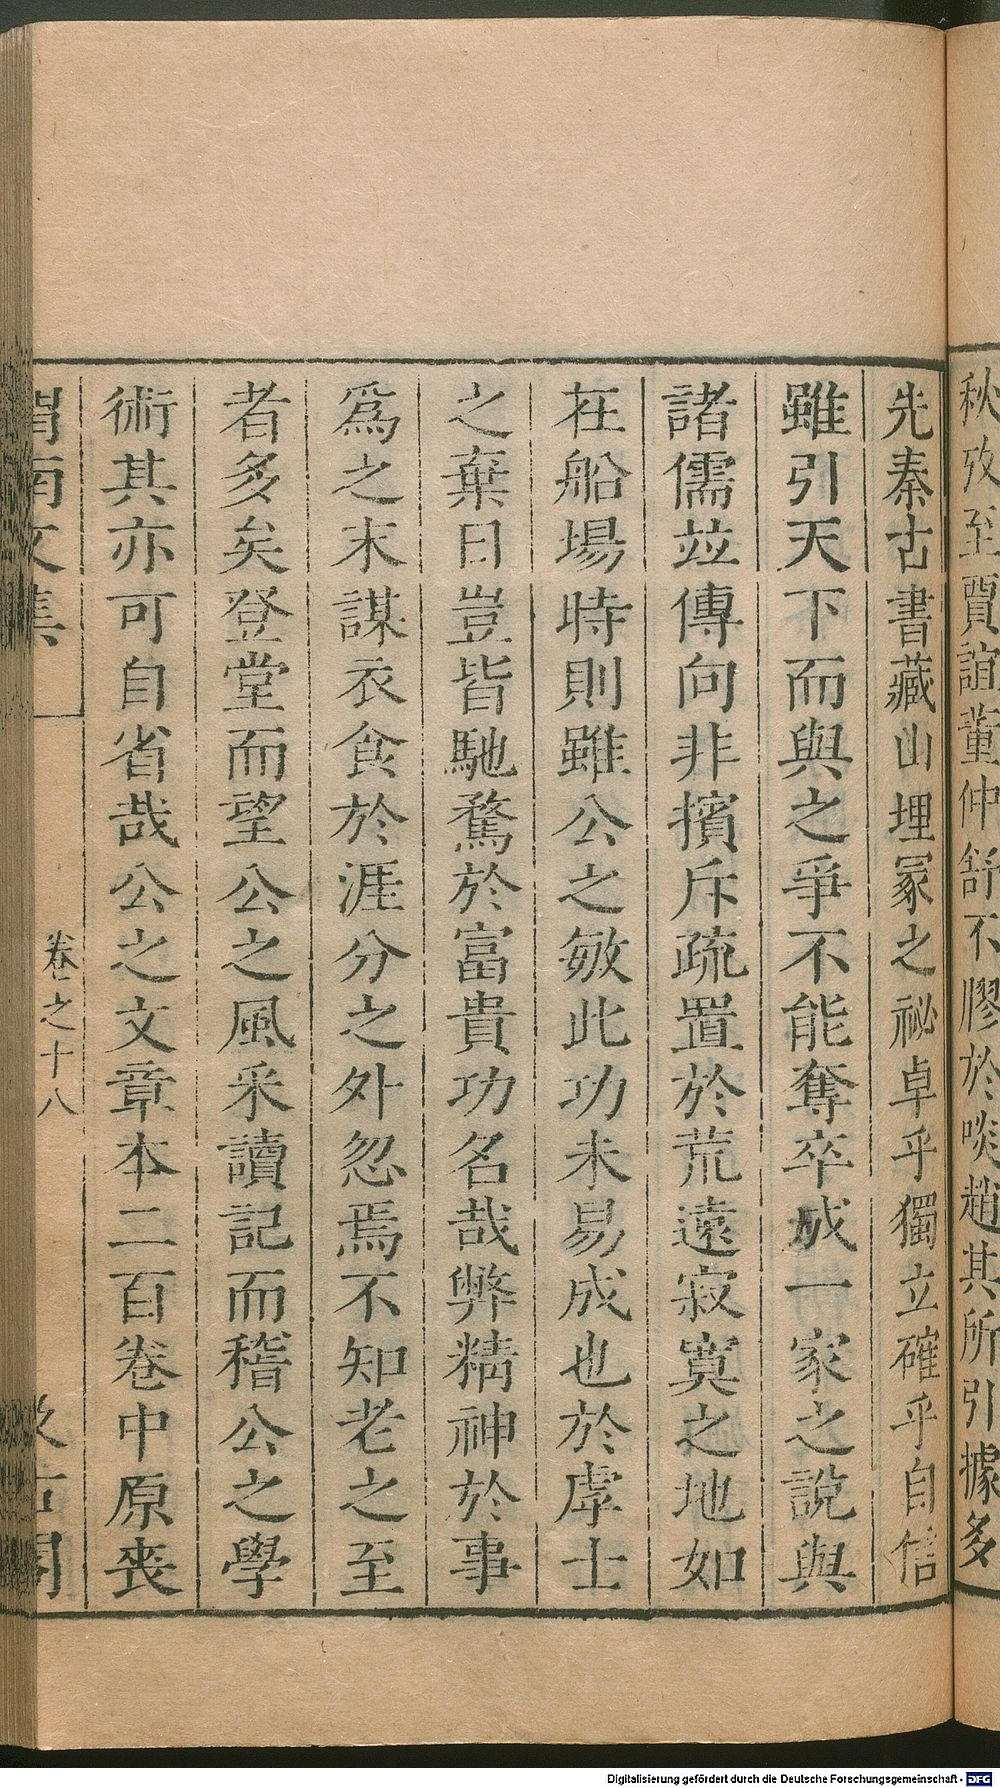 秋攷至賈誼董仲舒不膠於啖趙其所引據多
先秦古書藏山埋冢之祕卓乎獨立確乎自信
雖引天下而與之爭不能奪卒成一家之說與
諸儒竝傳向非擯斥疏置於荒遠寂寞之地如
在船場時則雖公之敏此功未易成也於虖士
之棄日豈皆馳騖於富貴功名哉弊精神於事
爲之末謀衣食於涯分之外忽焉不知老之至
者多矣登堂而望公之風采讀記而稽公之學
術其亦可自省哉公之文章本二百卷中原喪
渭南文集 卷之十八 汲古閣
Digitalisierung gefördert durch die Deutsche Forschungsgemeinschaft - DFG